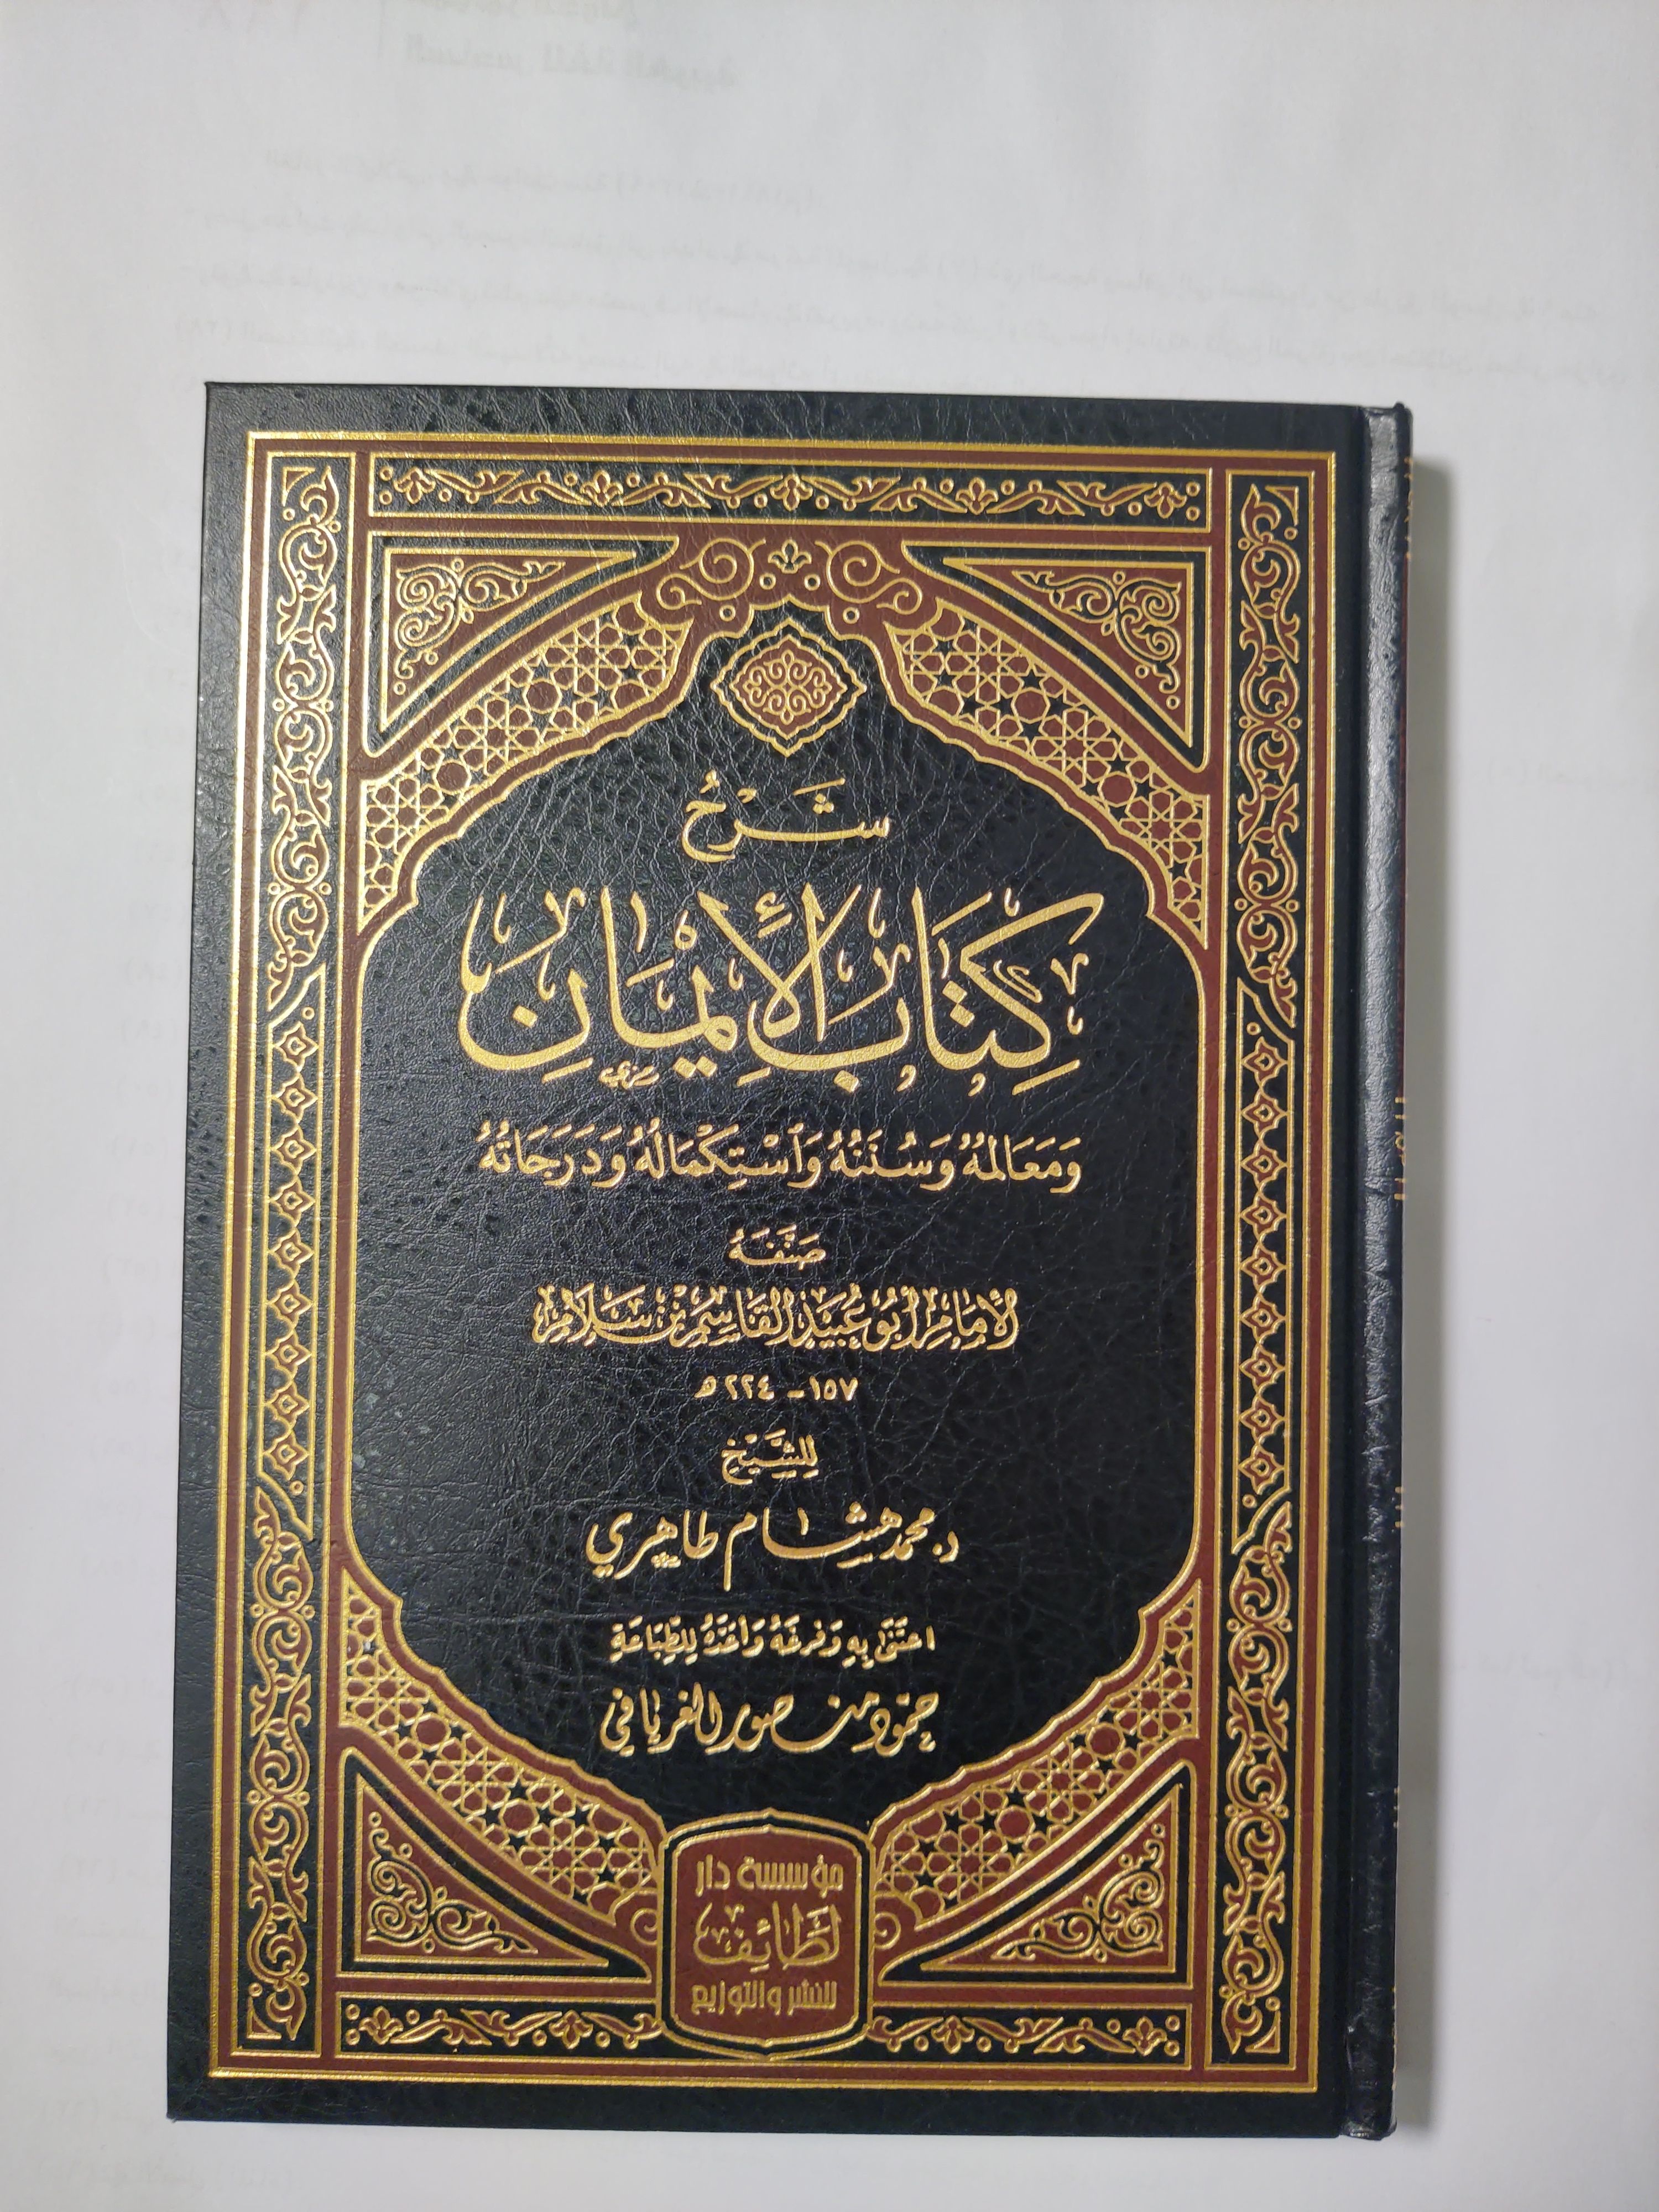 شَرْحُ
كِتَابِ الْإِيمَانِ
وَمَعَالِمُهُ وَسُنَنُهُ وَاسْتِكْمَالُهُ وَدَرَجَاتُهُ
صَنَّفَهُ
الإمَامُ أَبُو عُبَيْدٍ القَاسِمُ بْنُ سَلَّامٍ
١٥٧ - ٢٢٤ هـ
لِلشَّيْخِ
د. محمد هشام طاهري
اعْتَنَى بِهِ وَفَرَّغَهُ وَأَعَدَّهُ لِلطِّبَاعَةِ
منصور الغريافي
مؤسسة دار
لَطَائِف
للنشر والتوزيع